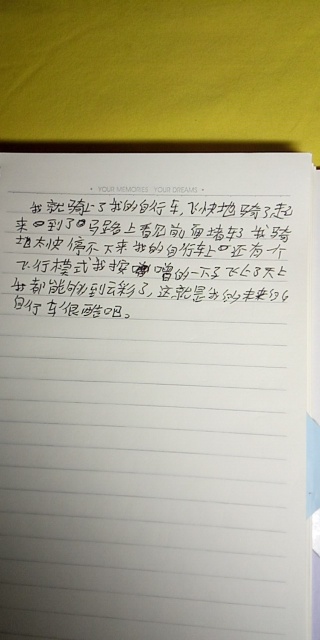 YOUR MEMORIES YOUR DREAMS
我就骑上了我的自行车,飞快地骑了起
来。到了马路上看见前面堵车了我骑
地太快停不下来我的自行车上还有一个
飞行模式我按噌的一下子飞上了天上
我都能够到云彩了,这就是我的未来的
自行车很酷吧。